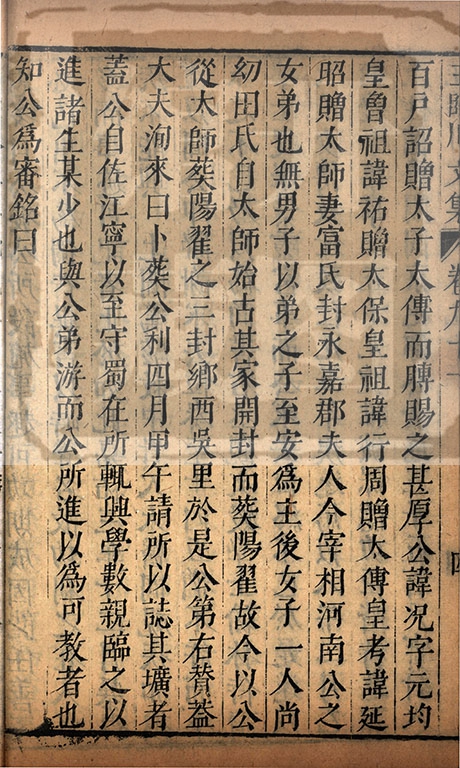 王臨川文集 卷九十一 四
百戶詔贈太子太傅而賻賜之甚厚公諱况字元均
皇曾祖諱祐贈太保皇祖諱行周贈太傅皇考諱延
昭贈太師妻富氏封永嘉郡夫人今宰相河南公之
女弟也無男子以弟之子至安爲主後女子一人尚
幼田氏自太師始古其家開封而葬陽翟故今以公
從太師葬陽翟之三封鄉西吳里於是公弟右賛善
大夫洵來曰卜葬公利四月甲午請所以誌其壙者
蓋公自佐江寧以至守蜀在所輒興學數親臨之以
進諸生某少也與公弟游而公所進以爲可教者也
知公爲審銘曰